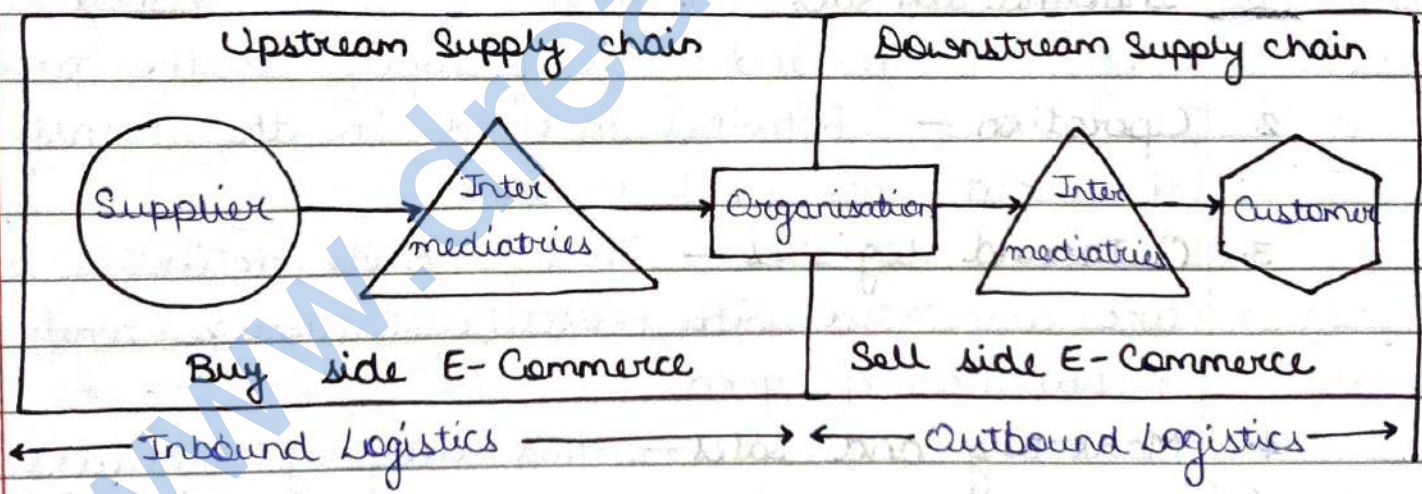 Upstream Supply chain
Downstream Supply chain
Supplier
Inter
mediatries
Organisation
Inter
mediatries
Customer
Buy side E-Commerce
Sell side E-Commerce
Inbound Logistics
Outbound Logistics
www.drea